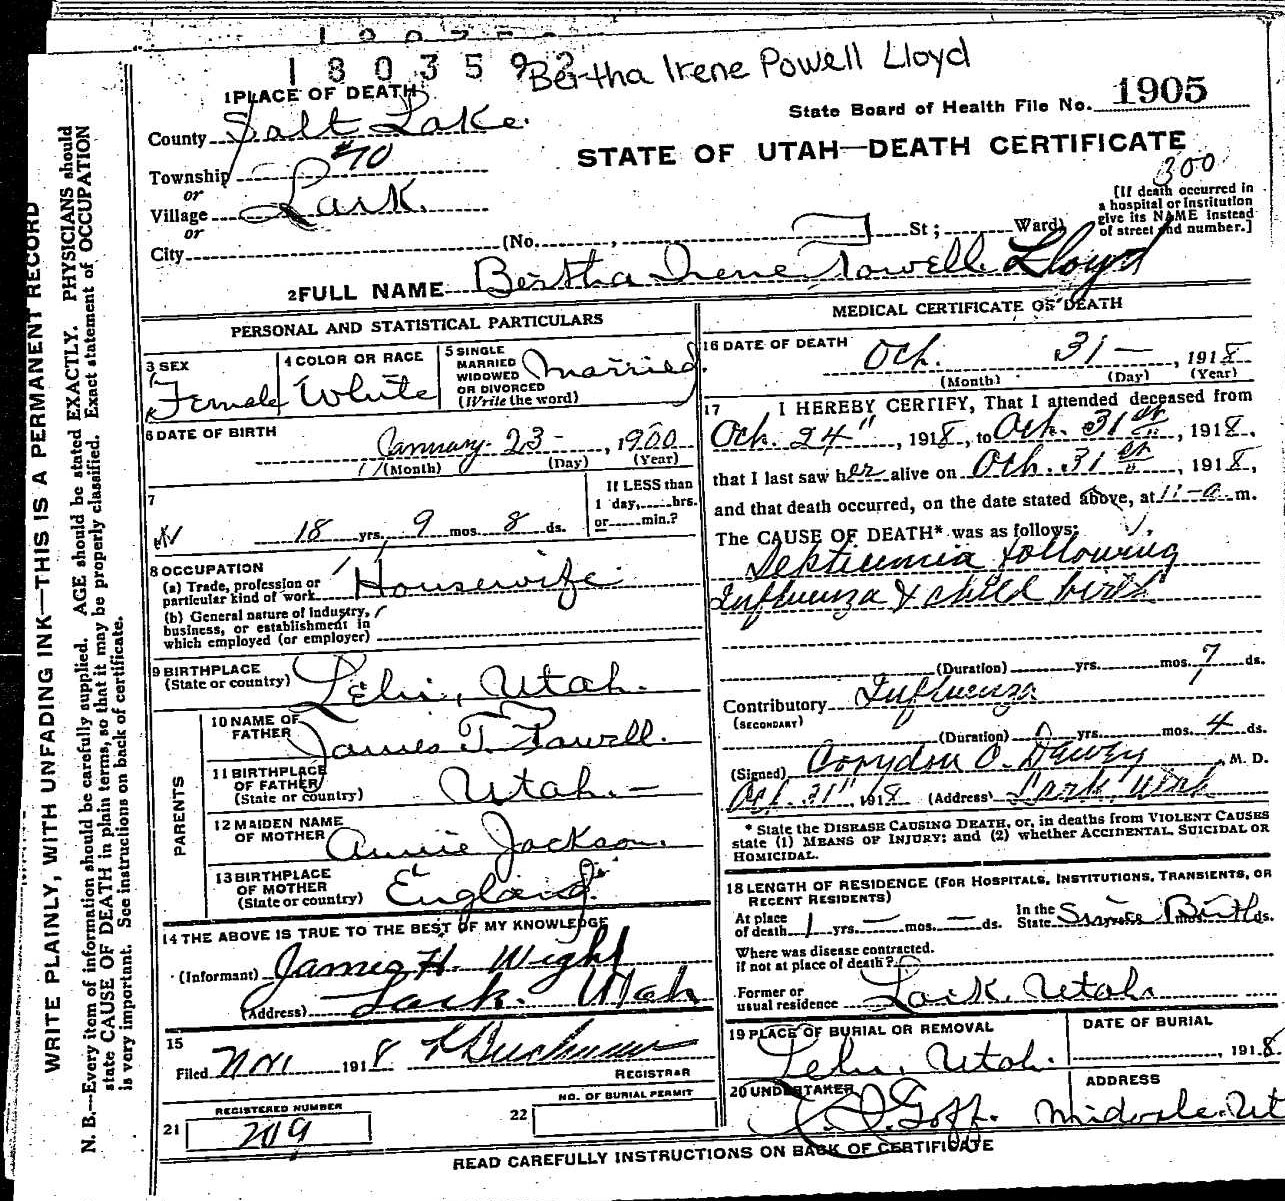 1803592
Bertha Irene Powell Lloyd
1 PLACE OF DEATH
State Board of Health File No. 1905
County Salt Lake.
STATE OF UTAH—DEATH CERTIFICATE
Township #70
300
or
Village Lark.
or
City
(No. , St ; Ward)
[If death occurred in
a hospital or institution
give its NAME instead
of street and number.]
2 FULL NAME Bertha Irene Powell Lloyd
PERSONAL AND STATISTICAL PARTICULARS
3 SEX
Female
4 COLOR OR RACE
White
5 SINGLE
MARRIED
WIDOWED
OR DIVORCED
(Write the word)
Married.
6 DATE OF BIRTH
January 23 - , 1900
(Month) (Day) (Year)
7
18 yrs. 9 mos. 8 ds.
If LESS than
1 day, hrs.
or min.?
8 OCCUPATION
(a) Trade, profession or
particular kind of work Housewife
(b) General nature of industry,
business, or establishment in
which employed (or employer)
9 BIRTHPLACE
(State or country) Lehi, Utah.
PARENTS
10 NAME OF
FATHER James T. Powell.
11 BIRTHPLACE
OF FATHER
(State or country) Utah. —
12 MAIDEN NAME
OF MOTHER Annie Jackson.
13 BIRTHPLACE
OF MOTHER
(State or country) England.
14 THE ABOVE IS TRUE TO THE BEST OF MY KNOWLEDGE
(Informant) James H. Wight
(Address) Lark. Utah
15
Filed Nov 1918
REGISTRAR
REGISTERED NUMBER
21 209
NO. OF BURIAL PERMIT
22
MEDICAL CERTIFICATE OF DEATH
16 DATE OF DEATH
Oct. 31 — , 1918
(Month) (Day) (Year)
17 I HEREBY CERTIFY, That I attended deceased from
Oct. 24" , 1918, to Oct. 31st , 1918,
that I last saw her alive on Oct. 31st , 1918,
and that death occurred, on the date stated above, at 11-a m.
The CAUSE OF DEATH* was as follows:
Septicemia following
Influenza & child birth
(Duration) yrs. mos. 7 ds.
Contributory Influenza
(SECONDARY)
(Duration) 0 yrs. mos. 4 ds.
(Signed) Corydon C. Dewey , M. D.
Oct. 31" , 1918 (Address) Lark, Utah
* State the DISEASE CAUSING DEATH, or, in deaths from VIOLENT CAUSES
state (1) MEANS OF INJURY; and (2) whether ACCIDENTAL, SUICIDAL OR
HOMICIDAL.
18 LENGTH OF RESIDENCE (FOR HOSPITALS, INSTITUTIONS, TRANSIENTS, OR
RECENT RESIDENTS)
At place
of death 1 yrs. — mos. — ds.
In the
State Since Birth mos. ds.
Where was disease contracted.
if not at place of death?
Former or
usual residence Lark, Utah
19 PLACE OF BURIAL OR REMOVAL
Lehi, Utah.
DATE OF BURIAL
, 1918
20 UNDERTAKER
Goff.
ADDRESS
Midvale. Ut
READ CAREFULLY INSTRUCTIONS ON BACK OF CERTIFICATE
WRITE PLAINLY, WITH UNFADING INK—THIS IS A PERMANENT RECORD
N. B.—Every item of information should be carefully supplied. AGE should be stated EXACTLY. PHYSICIANS should
state CAUSE OF DEATH in plain terms, so that it may be properly classified. Exact statement of OCCUPATION
is very important. See instructions on back of certificate.